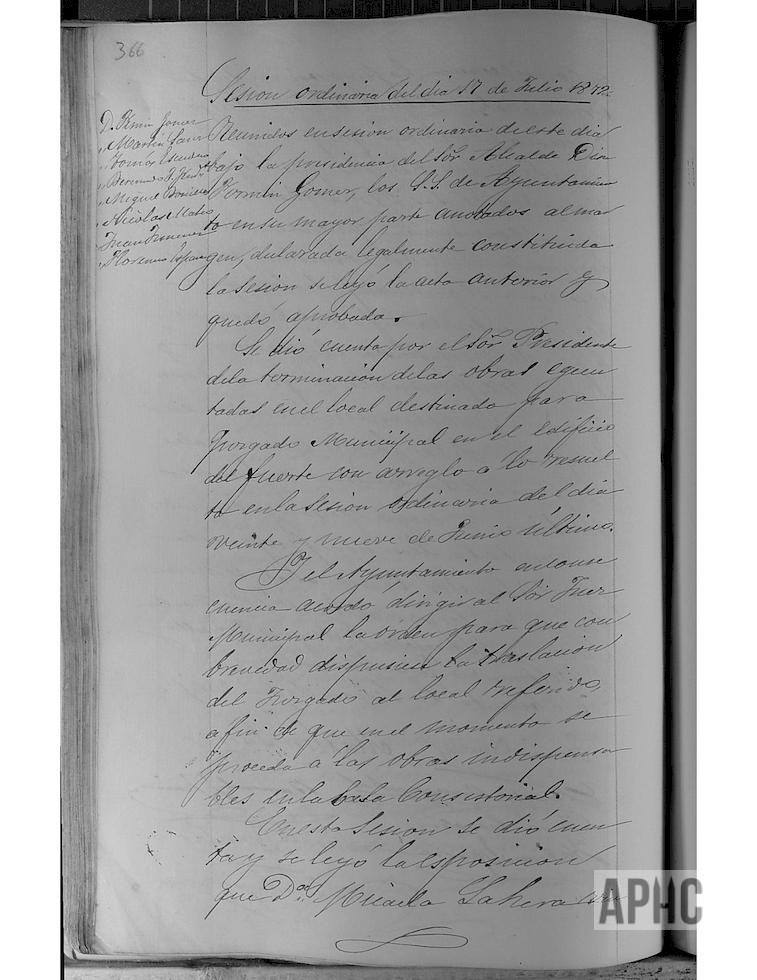 366
Sesion ordinaria del dia 17 de Julio 1872.
D. Fermin Gomer
" Martin
" Tomás
" Berenro
" Miguel
" Nicolas Mateo
" Juan Jimenez
" Florencio
Reunidos en sesion ordinaria de este dia
bajo la presidencia del Sor Alcalde Don
Fermin Gomer, los S.S. de Ayuntamien
to en su mayor parte anotados al mar
gen, declarada legalmente constituida
la sesion se leyó la acta anterior y
quedó aprobada.
Se dió cuenta por el Sor Presidente
de la terminacion de las obras egecu
tadas en el local destinado para
Juzgado Municipal en el edificio
del fuerte con arreglo a lo resuel
to en la sesion ordinaria del dia
veinte y nueve de Junio último.
Y el Ayuntamiento en conse
cuencia acordó dirigir al Sor Juez
Municipal la orden para que con
brevedad dispusiera la traslacion
del Juzgado al local referido,
a fin de que en el momento se
proceda a las obras indispensa
bles en la Casa Consistorial.
En esta Sesion se dió cuen
ta y se leyó la esposicion
que Da. Micaela Lahera
APHC